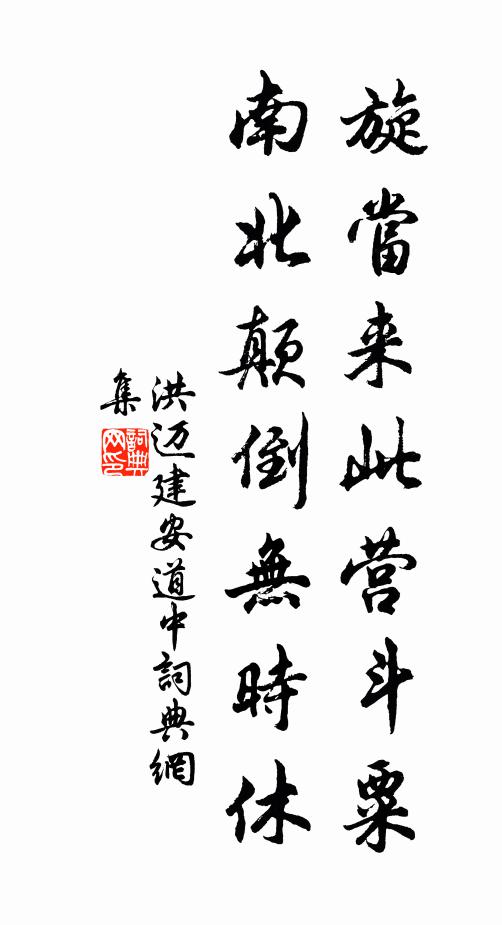 旋當来此营斗粟
南北颠倒無時休
洪迈建安道中詞典網
集
詞典网印